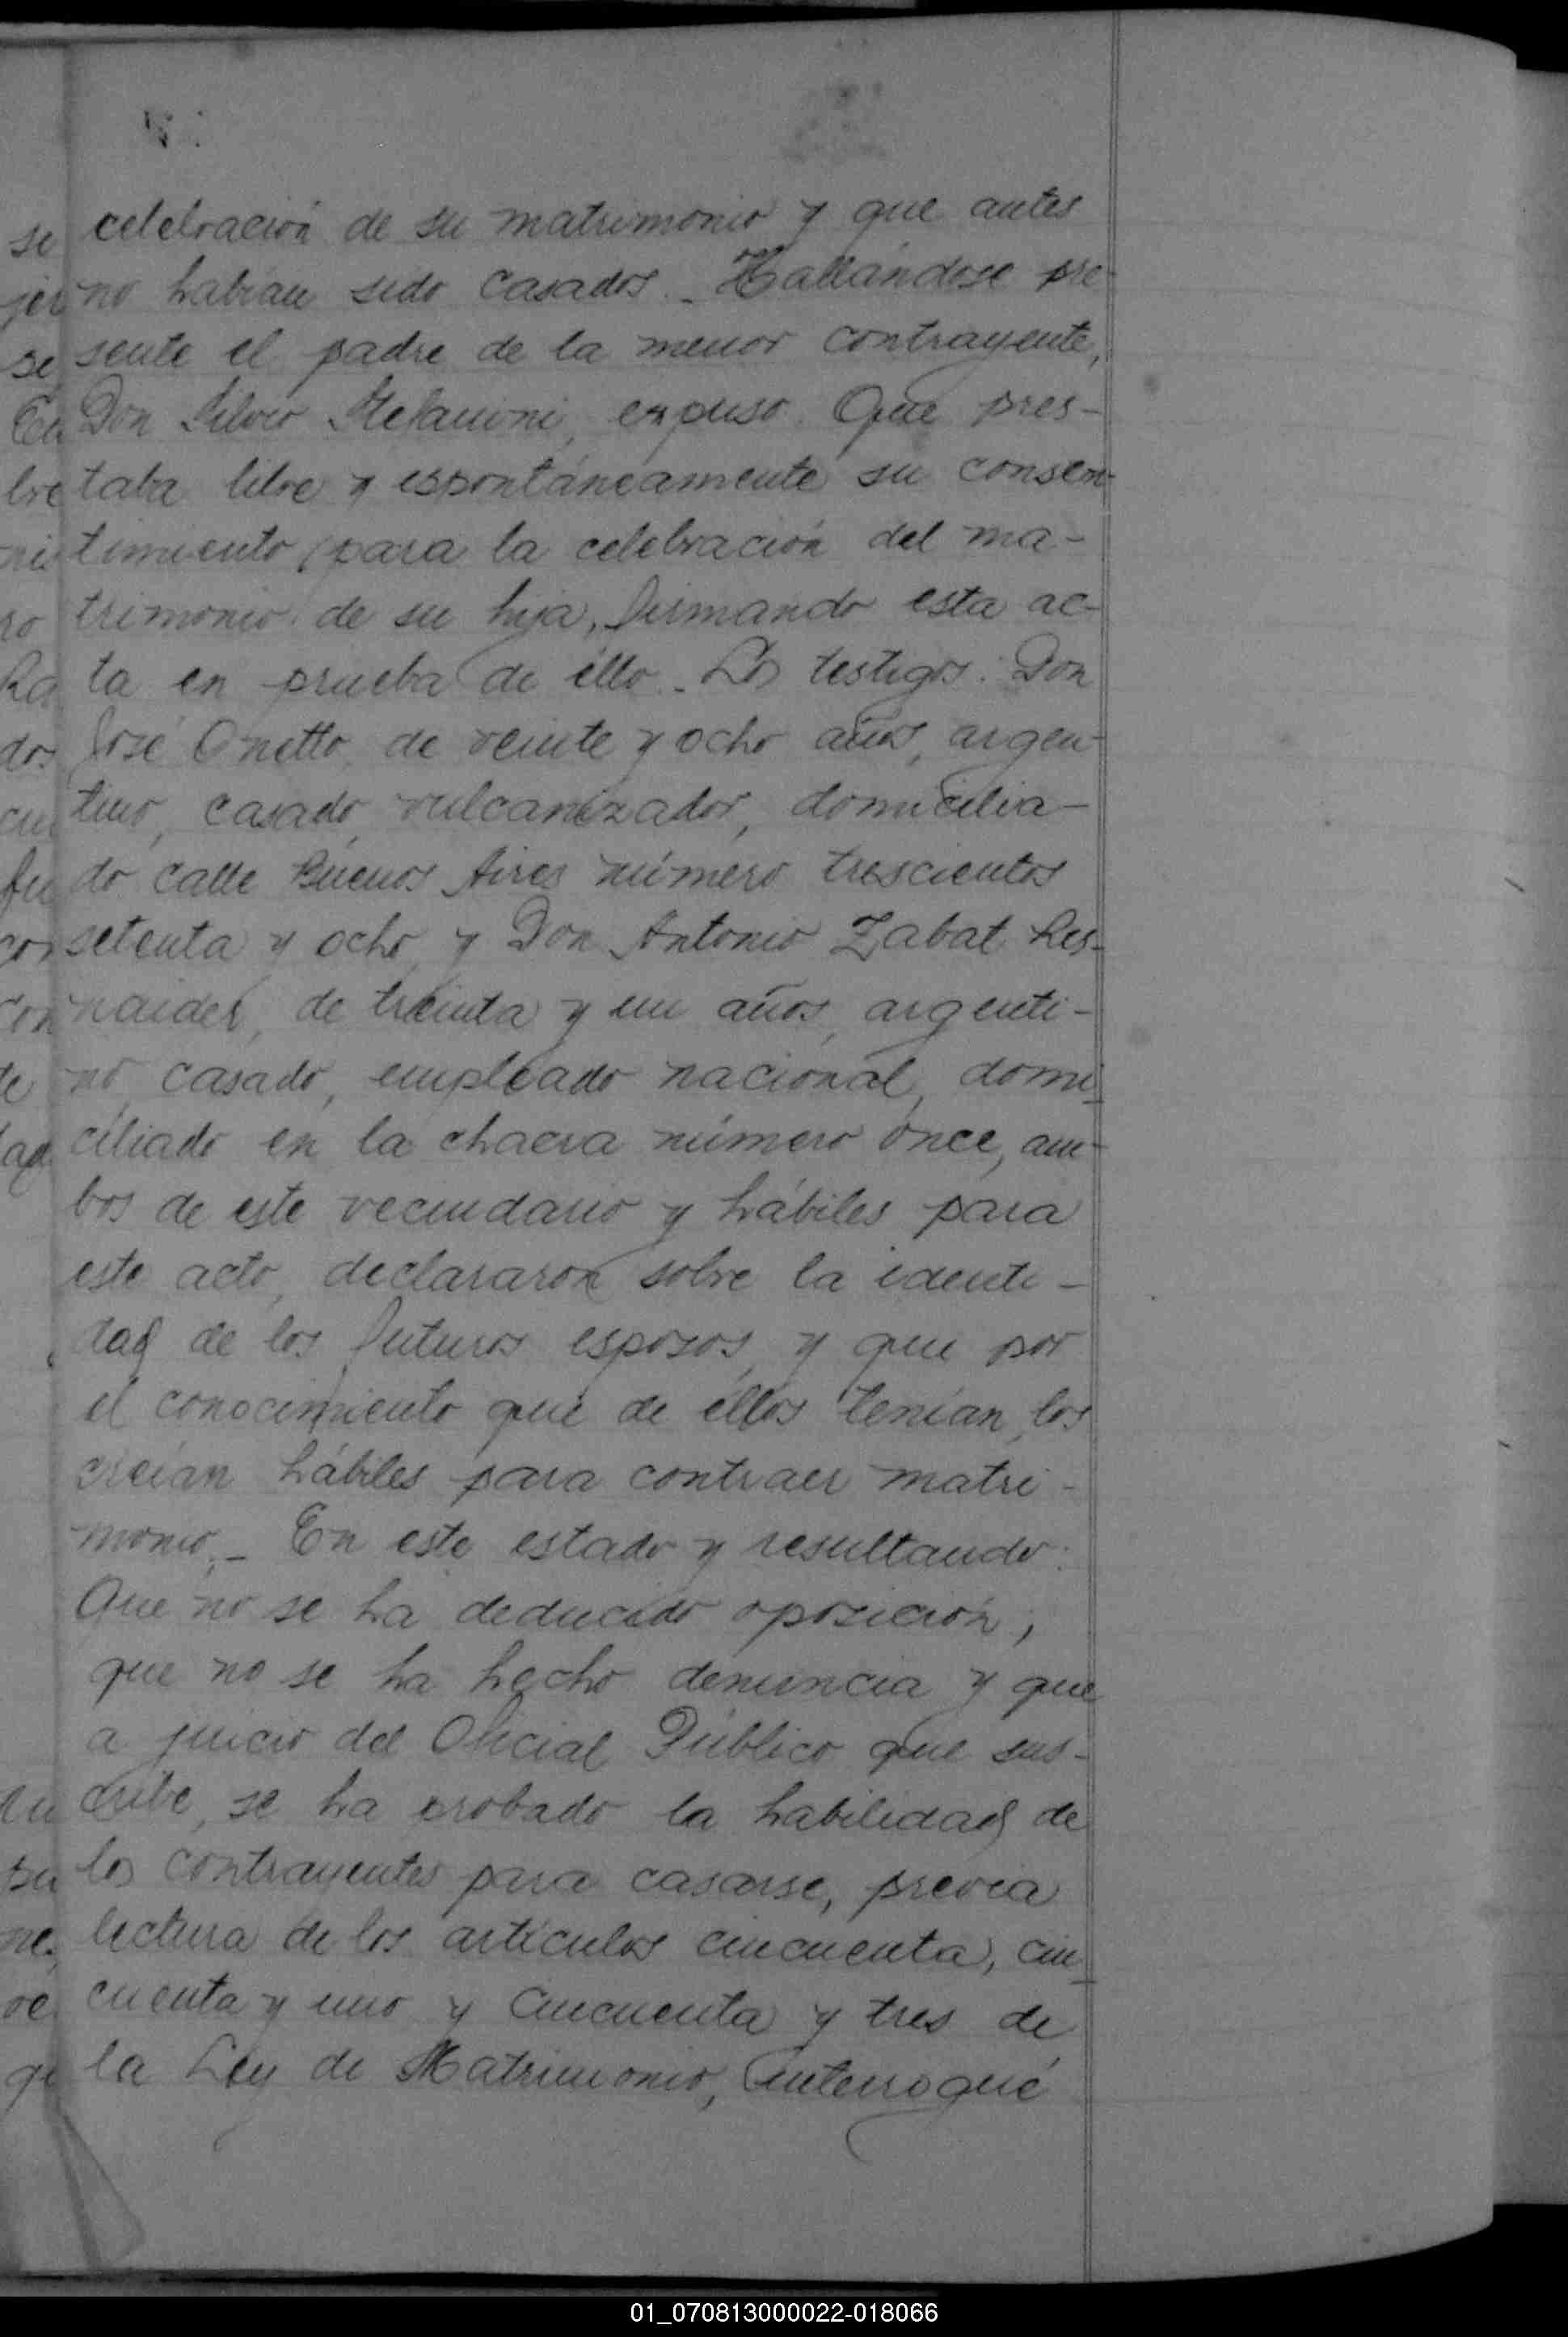 celebración de su matrimonio y que antes
no habían sido casados. - Hallándose pre-
sente el padre de la menor contrayente,
Don Silvio Stefanini, expuso: Que pres-
taba libre y espontáneamente su consen-
timiento para la celebración del ma-
trimonio de su hija, firmando esta ac-
ta en prueba de éllo. - Los testigos: Don
José Onetto, de veinte y ocho años, argen-
tino, casado, vulcanizador, domicilia-
do calle Buenos Aires número trescientos
setenta y ocho, y Don Antonio Zabat
de treinta y un años, argenti-
no, casado, empleado nacional, domi-
ciliado en la chacra número once, am-
bos de este vecindario y hábiles para
este acto, declararon sobre la identi-
dad de los futuros esposos, y que por
el conocimiento que de éllos tenían, los
creían hábiles para contraer matri-
monio. - En este estado y resultando:
Que no se ha deducido oposición,
que no se ha hecho denuncia y que
a juicio del Oficial Público que sus-
cribe, se ha probado la habilidad de
los contrayentes para casarse, previa
lectura de los artículos cincuenta, cin-
cuenta y uno y cincuenta y tres de
la Ley de Matrimonio, interrogué
01_070813000022-018066